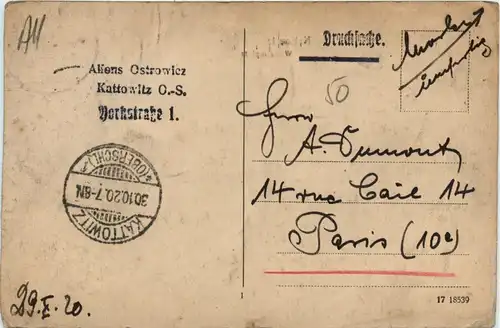 All
Alfons Ostrowicz
Kattowitz O.-S.
Yorkstraße 1.
Drucksache.
50
Herrn
A. Dumont
14 rue Cail 14
Paris (10e)
KATTOWITZ
30.10.20.7-8N.
*(OBERSCHL.)
29.X.20.
1
17 18539